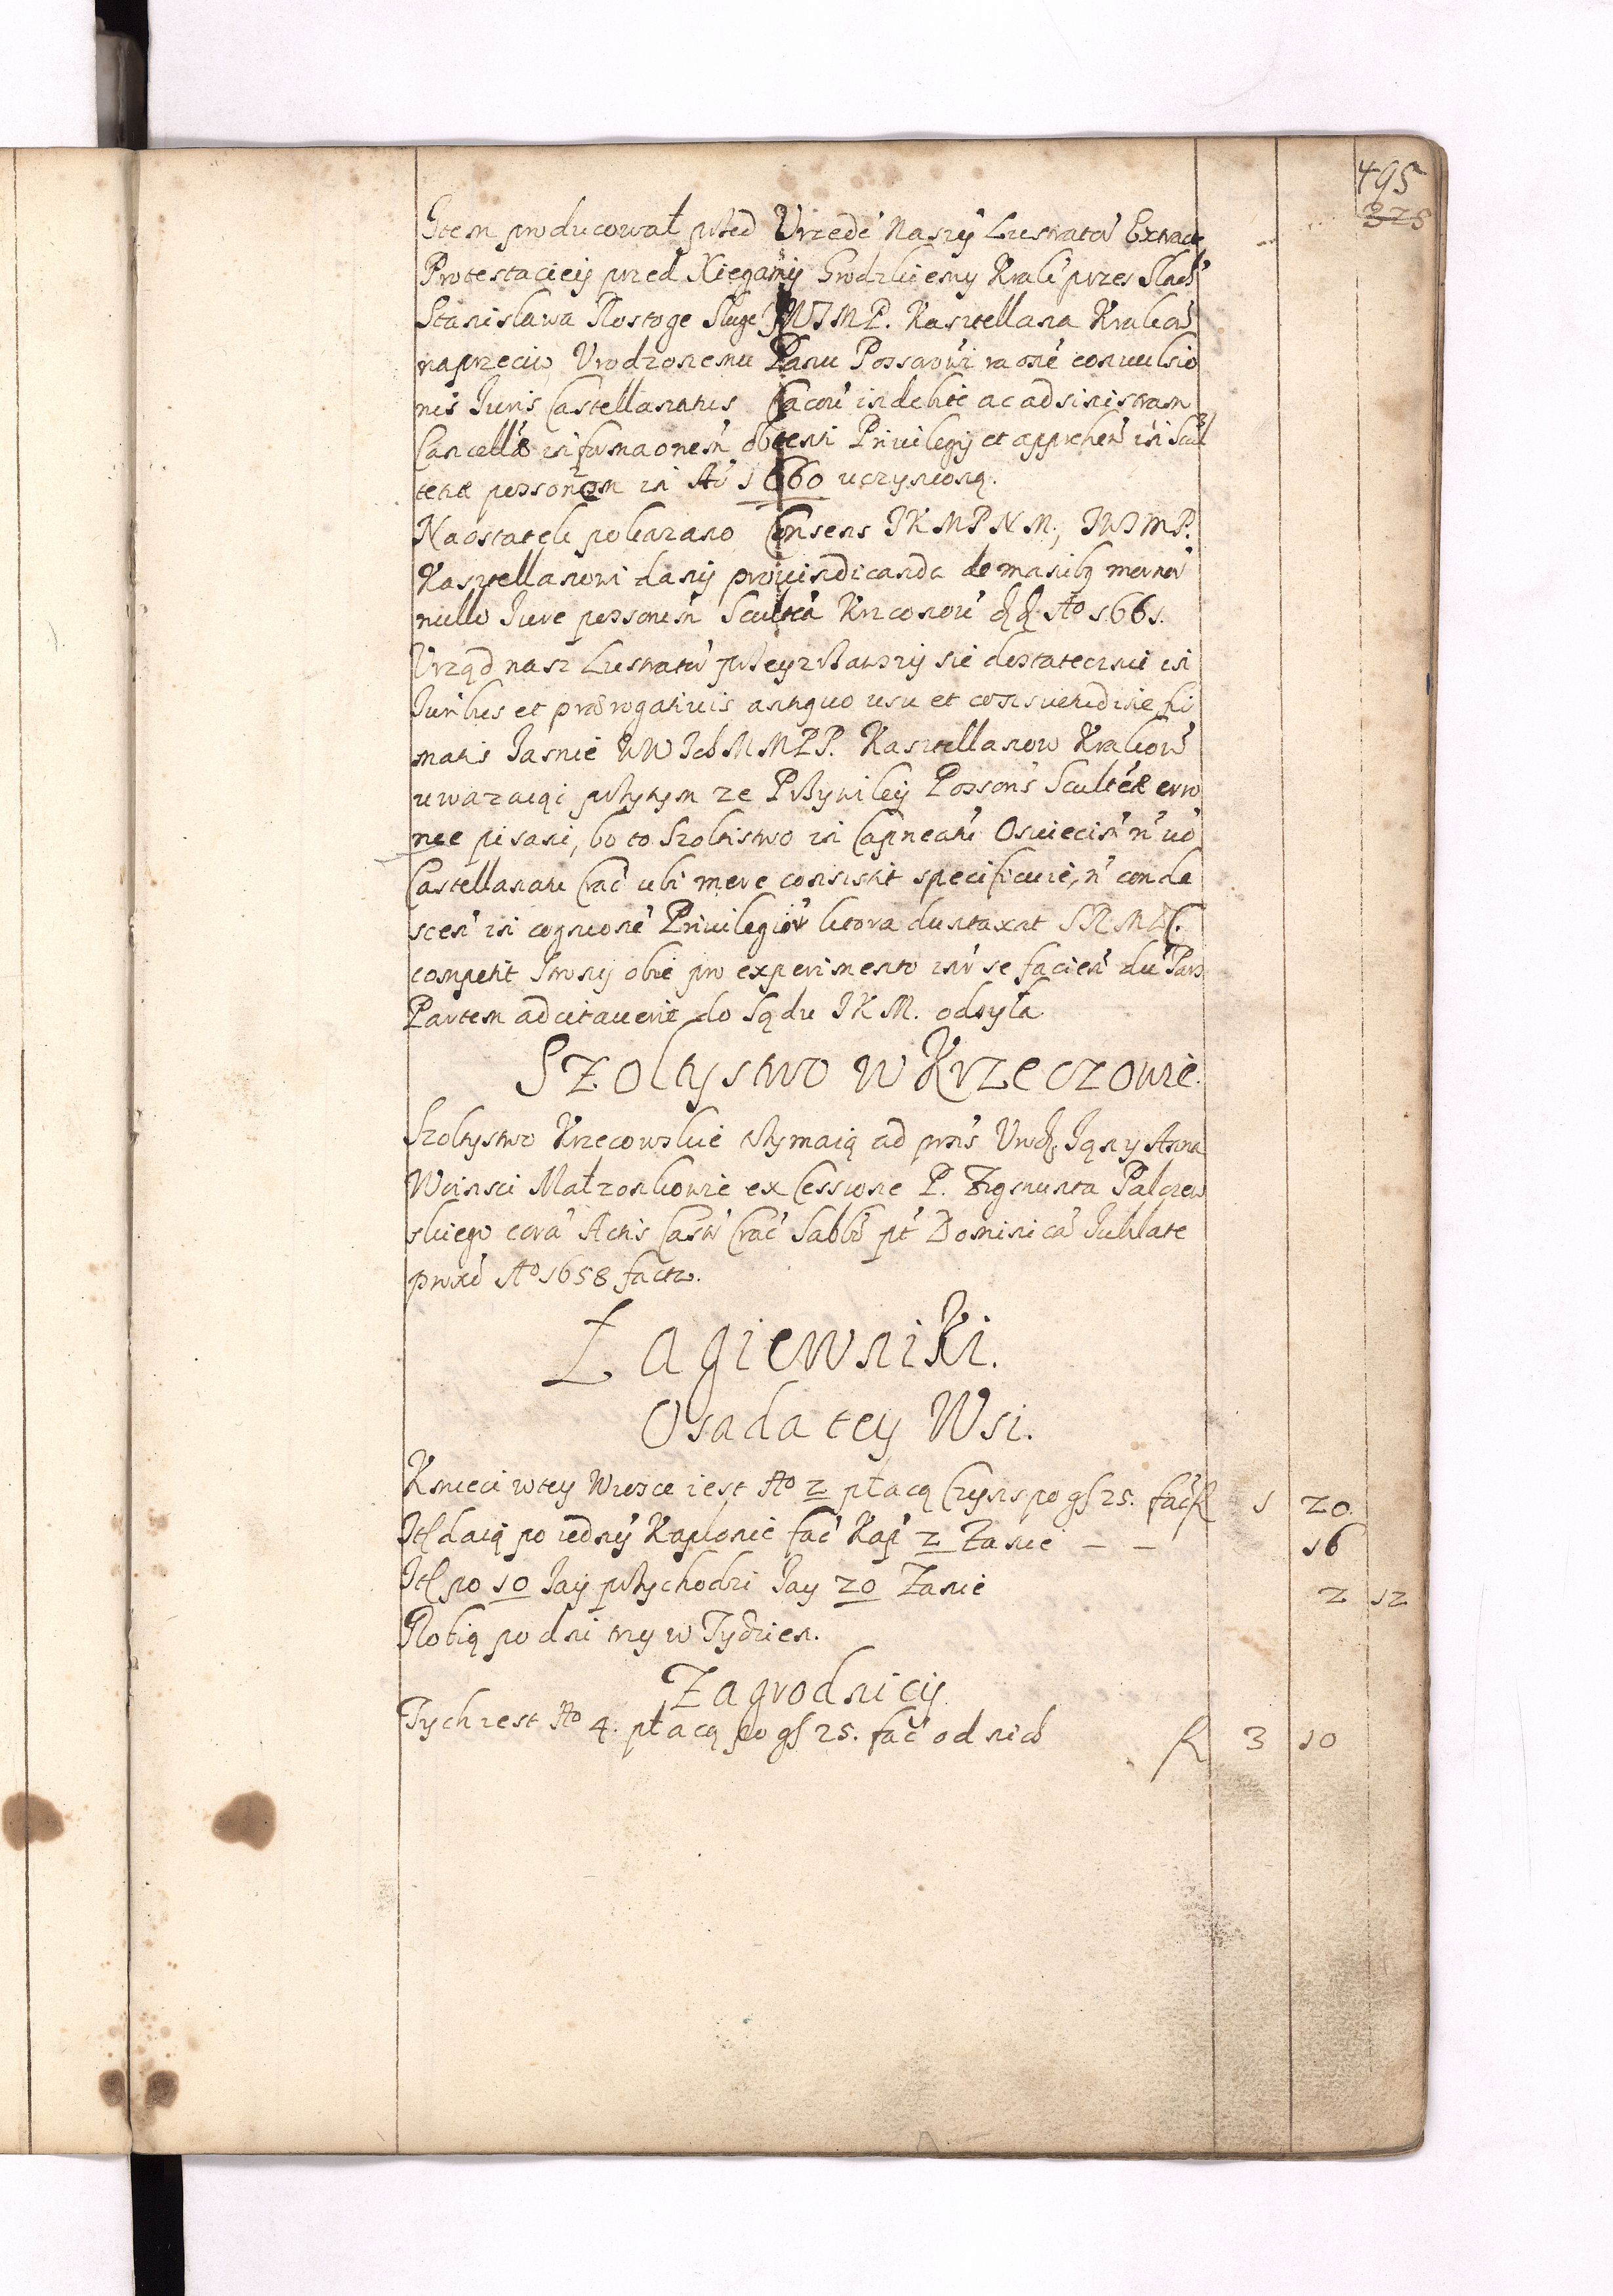 495
325
Item producował przed Vrzedē Naszÿ Lustratō Extract
Protestaciey przed Xiegamÿ Grodzkiemy Krak przes Slach
Stanislawa Rostoge Sluge JWJMP. Kasztellana Krakow
naprzeciw Vrodzonemu Panu Possarowi raōne convulsio
nis Juris Castellanatus Cracoū indebite ac ad sinistram
Cancellæ informaonem obtenti Priuilegÿ et apprehen in Scul
tetia personem in Aō 1660 uczynioną.
Naostatek pokazano Consens JKMPNM, JWJMP.
Kasztellanowi danÿ pro vindicanda de manibq
nullo Jure Scultetia Krzconow Aº 1661.
Vrząd nasz Lustrato przeyrzawszy sie dostatecznie in
Juribus et prærogatiuis antiquo usu et consuetudine fi
matis Jasnie WW JchMMPP. Kasztellanow Krakow
uwazaiąci przytym ze Przywiley Scultetiæ erro
nee pisani, bo to Szoltistwo in Capneatu Osviecim n vō
Castellanatu Crac ubi mere consistit specificuie, n conde
scen in cognione Priuilegior litora duntaxat SRMC.
competit Strony obie pro experimento inr se facien du Pars
Partem adcitauerit do Sądu JKM. odsyła.
Szoltystwo w Krzeczowie.
Szoltystwo Krzecowskie trzymaią ad pns Jąn y Anna
Małzonkowie ex Cessione P. Zigmunta Palczew
skiego corā Actis Castr Crac Sabbō pt Dominicā Jubilate
proxē Aº 1658 facta.
Łagiewniki.
Osada tey Wsi.
Kmieci w tey Wiosce iest Nº 2 płacą Czynsz po gſ 25. fać ſſ 1 20.
Itſ daią po iednÿ Kaplonie fać Kap 2 Zanie — — 16
Itſ po 10 Jay przychodzi Jay 20 Zanie 2 12
Robią po dni trzy w Tydzien.
Zagrodnicÿ
Tych iest Nº 4. płacą po gſ 25. fać od nich ſſ 3 10